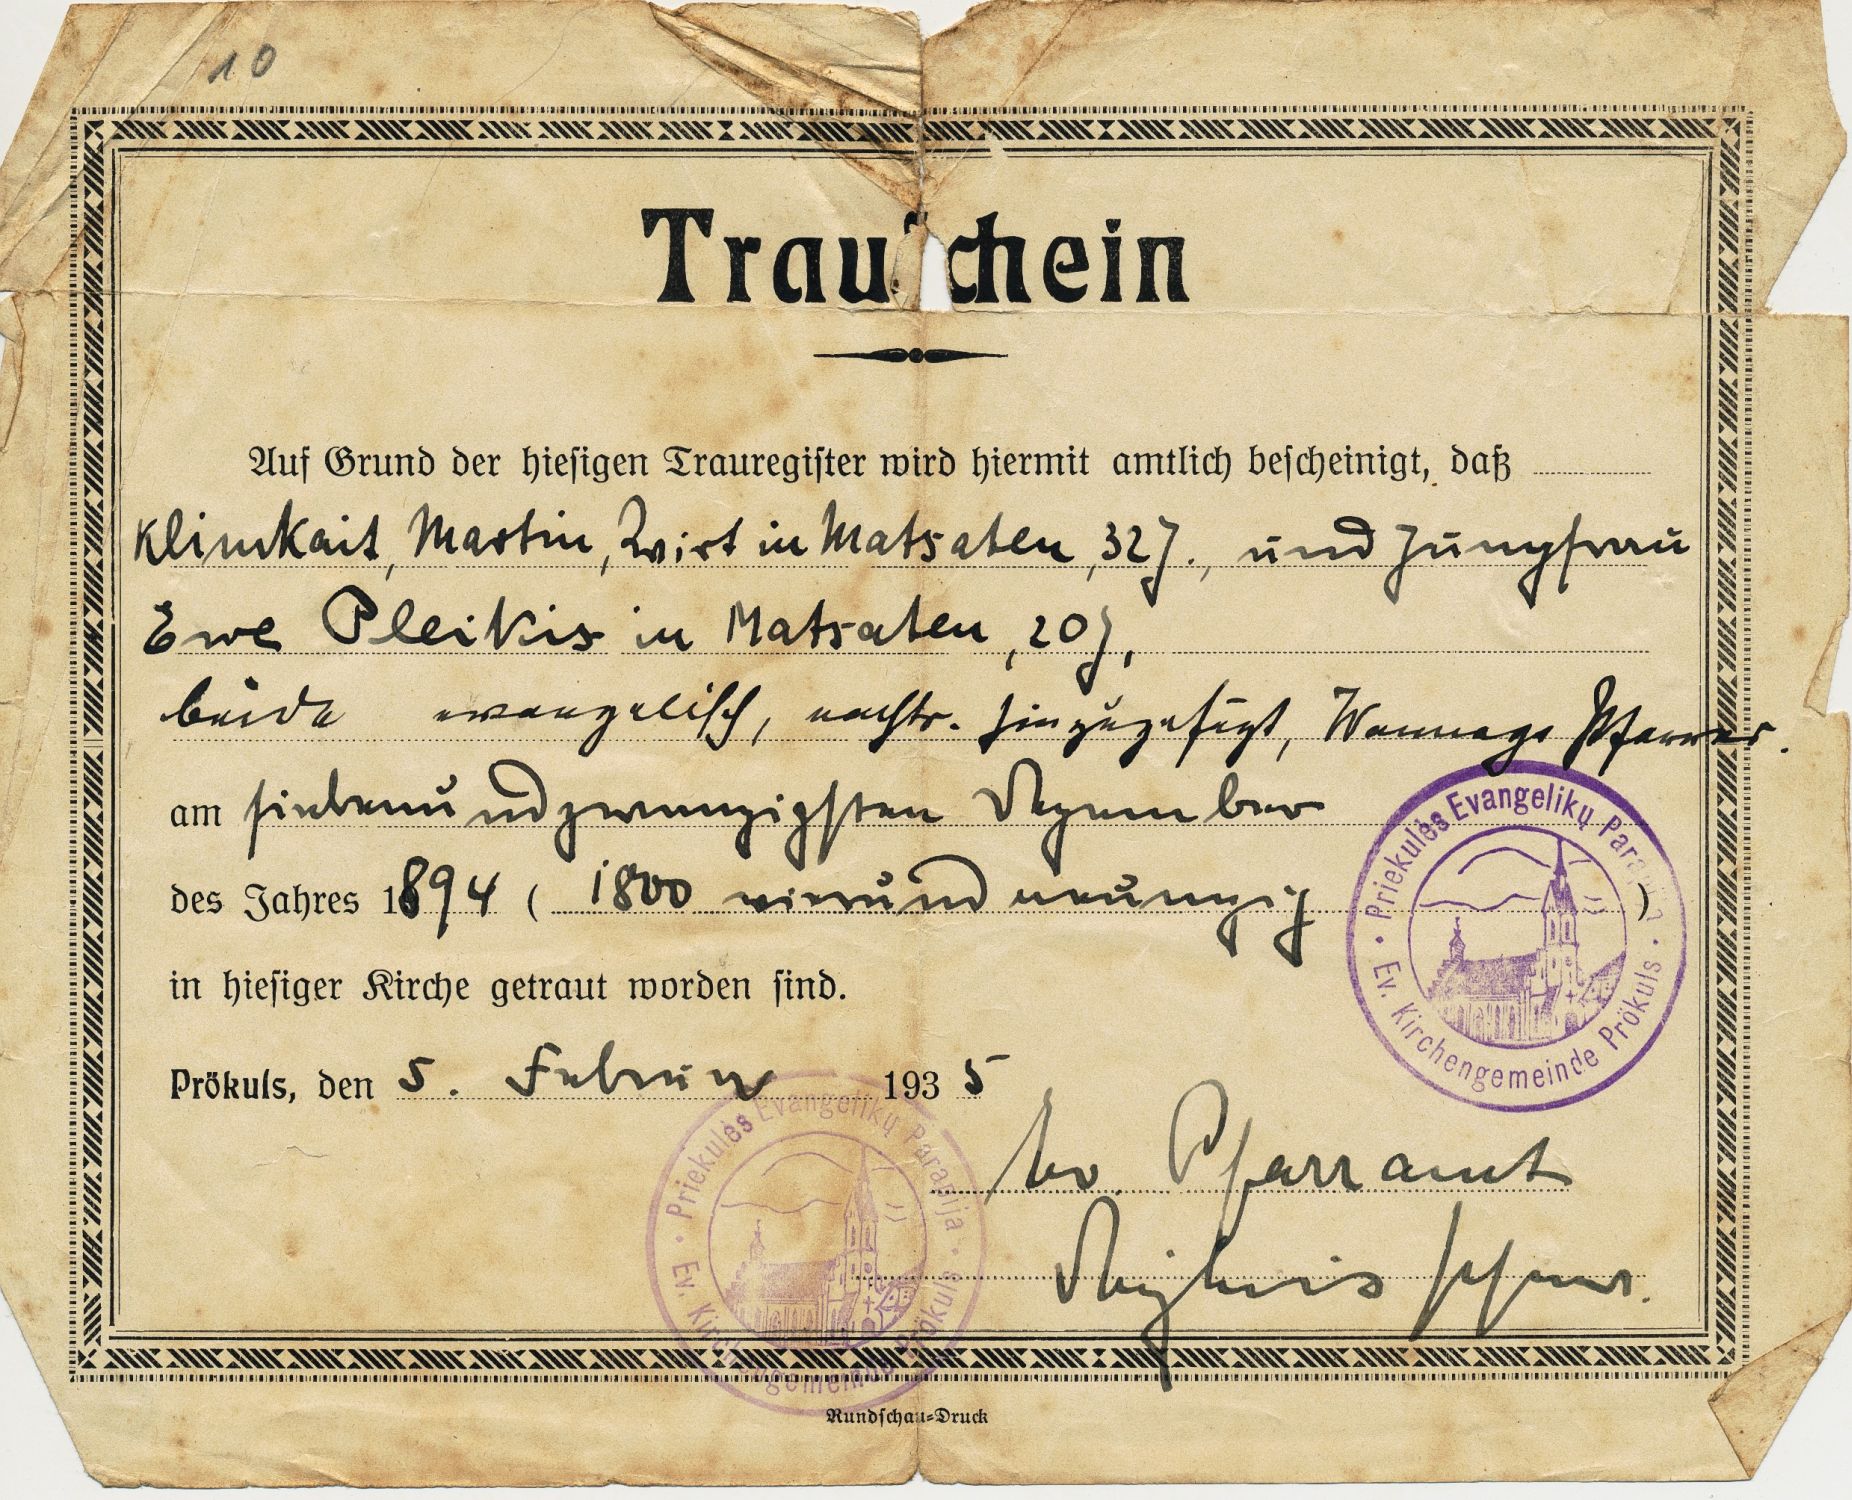 10
Trauschein
Auf Grund der hiesigen Trauregister wird hiermit amtlich bescheinigt, daß
Klimkait, Martin, Wirt in Matsaten, 32 J., und Jungfrau
Ewe Pleikis in Matsaten, 20 J,
beide evangelisch, nachtr. hinzugefügt, Wannags Pfarrer.
am siebenundzwanzigsten Dezember
des Jahres 1894 ( 1800 vierundneunzig )
in hiesiger Kirche getraut worden sind.
Prökuls, den 5. Februar 1935
Ev. Pfarramt
Pfarr.
Priekulės Evangelikų Parapija
Ev. Kirchengemeinde Prökuls
Priekulės Evangelikų Parapija
Ev. Kirchengemeinde Prökuls
Rundschau-Druck